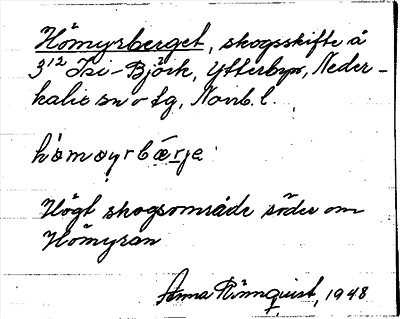 Hömyrberget, skogsskifte å
3¹² Isi-Björk, Ytterbyn, Neder-
kalix sn o tg, Norrb. l.
hömoyrbærje
Högt skogsområde söder om
Hömyran
Anna Rönnquist, 1948